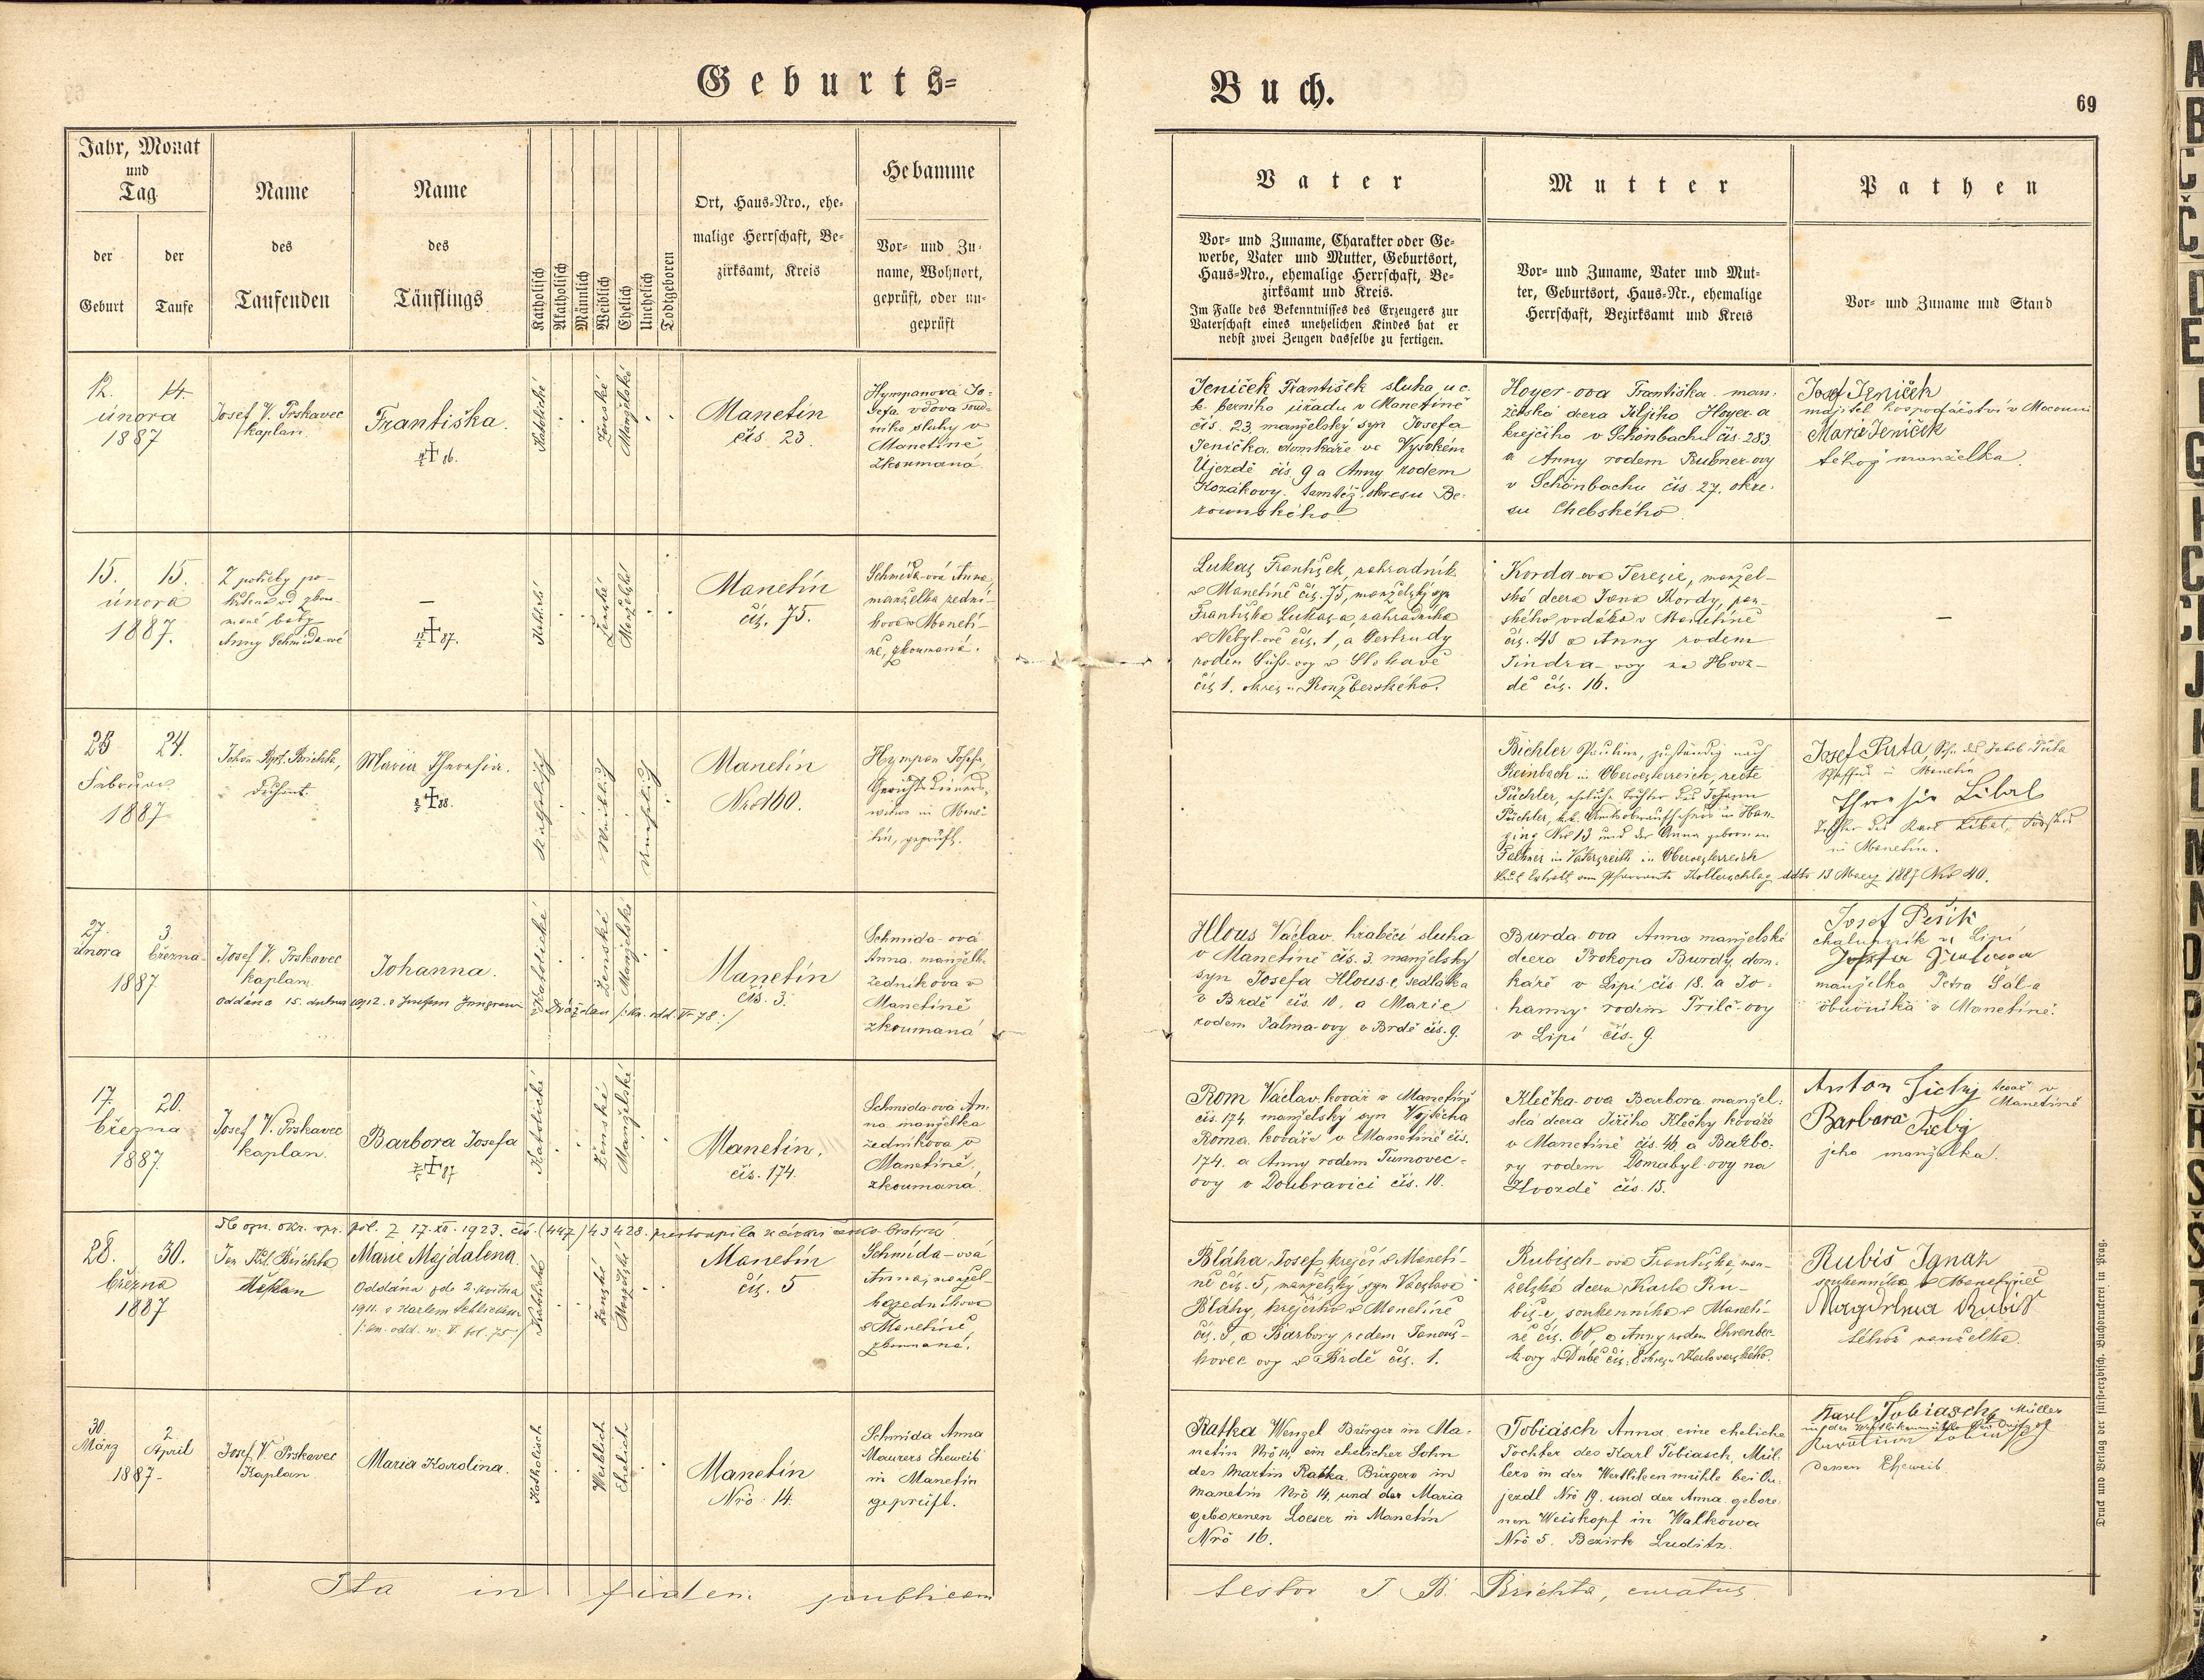 Geburts=
Buch.
69
Jahr, Monat
und
Tag
der
Geburt
der
Taufe
Name
des
Taufenden
Name
des
Täuflings
Katholisch
Akatholisch
Männlich
Weiblich
Ehelich
Unehelich
Todtgeboren
Ort, Haus-Nro., ehe-
malige Herrschaft, Be-
zirksamt, Kreis
Hebamme
Vor- und Zu-
name, Wohnort,
geprüft, oder un-
geprüft
Vater
Vor- und Zuname, Charakter oder Ge-
werbe, Vater und Mutter, Geburtsort,
Haus-Nro., ehemalige Herrschaft, Be-
zirksamt und Kreis.
Im Falle des Bekenntnisses des Erzeugers zur
Vaterschaft eines unehelichen Kindes hat er
nebst zwei Zeugen dasselbe zu fertigen.
Mutter
Vor- und Zuname, Vater und Mut-
ter, Geburtsort, Haus-Nr., ehemalige
Herrschaft, Bezirksamt und Kreis
Pathen
Vor- und Zuname und Stand
12. 14.
února
1887
Josef V. Prskavec
kaplan
Františka.
Katolické
Ženské
Manželské
Manetín
čís. 23.
Hympanova Jo-
sefa vdova soud-
ního sluhy v
Manetíně
zkoumaná.
Jeníček František sluha u c.
k. berního úřadu v Manetíně
čís. 23 manželský syn Josefa
Jeníčka domkáře ve Vysokém
Újezdě čís 9 a Anny rodem
Kozákovy tamtéž, okresu Be-
rounského
Hoyer-ova Františka man-
želská dcera Hoyer-a
krejčího v Schönbachu čís. 283
a Anny rodem Rubner-ovy
v Schönbachu čís. 27. okre-
su Chebského.
Josef Jeníček
majitel hospodářství v
Marie Jeníček
téhož manželka.
15. 15.
února
1887.
Z potřeby po-
křtěna od zkou-
mané báby
Anny Schmida-ové
–
Ženské
Manželské
Manetín
čís. 75.
Schmida-ová Anna,
manželka zední-
kova v Maneti-
ně, zkoumaná.
Lukas František, zahradník
v Manetíně čís. 75, manželský syn
Františka Lukas-a, zahradníka
v čís. 1, a Gertrudy
rodem Süss-ovy v
čís 1. okresu Ronsberského.
Korda-ova Terezie, manžel-
ská dcera Jana Kordy, pan-
ského v Manetíně
čís. 43 a Anny rodem
Jindra-ovy na Hvoz-
dě čís. 16.
–
23 24.
Februar
1887
Johann Bapt. Brichta,
Dechant.
Maria Theresia.
Katholisch
Weiblich
Unehelich
Manetín
Nro 160.
Hympan Josefa,
Gerichtsdieners-
witwe in Mane-
tin, geprüft.
Bichler Paulina, zuständig nach
Reinbach in Oberoesterreich, recte
Püchler, eheliche Tochter des Johann
Püchler, k.k. in Han-
ging Nro 13 und der Anna geborenen
Falkner in Vatersreith in Oberoesterreich
laut Extrakt vom Pfarramte Kollerschlag ddto 13 Maerz 1887 Nro 40.
Josef Puta, Sohn des Jakob Puta
in Manetin
Theresia Libal
Tochter des Karl Libal, Försters
in Manetin.
27. 3
února března
1887
Josef V. Prskavec
kaplan
Johanna.
Oddána 15. dubna 1912. s Josefem v Drážďan /: Kn. odd. VI 78 :/
Katolické
Ženské
Manželské
Manetín
čís. 3.
Schmida-ová
Anna manželk.
zedníkova v
Manetíně
zkoumaná
Hlous Václav hraběcí sluha
v Manetíně čís. 3. manželský
syn Josefa Hlous-e, sedláka
v Brdě čís. 10. a Marie
rodem Palma-ovy v Brdě čís. 9.
Burda-ova Anna manželská
dcera Prokopa Burdy, dom-
káře v Lipí čís 18. a Jo-
hanny rodem Trilč-ovy
v Lipí čís. 9.
Josef Pešík
chalupník v Lipí
manželka Petra Šál-a
obuvníka v Manetíně.
17. 20.
března
1887.
Josef V. Prskavec
kaplan.
Barbora Josefa
Katolické
Ženské
Manželské
Manetín.
čís. 174.
Schmida-ová An-
na manželka
zedníkova v
Manetíně,
zkoumaná
Rom Václav kovář v Manetíně
čís. 174. manželský syn Vojtěcha
Roma kováře v Manetíně čís.
174. a Anny rodem Tumovec-
ovy v Doubravici čís. 10.
Klečka-ova Barbora manžel-
ská dcera Jiřího Klečky kováře
v Manetíně čís. 46 a Barbo-
ry rodem Domabyl-ovy na
Hvozdě čís. 15.
Anton Fichy kovář v
Manetíně
Barbara
jeho manželka.
28. 30.
března
1887
Jan Křt. Brichta
děkan
Marie Majdalena
Oddána zde 2. května
1911. s Karlem
/: kn. odd. n. V. fol. 75 :/
Katolické
Ženské
Manželské
Manetín
čís. 5
Schmida-ová
Anna, manžel-
ka zedníkova
v Manetíně
zkoumaná.
Bláha Josef, krejčí v Maneti-
ně čís. 5, manželský syn Václava
Bláhy, krejčího v Manetíně
čís. 5, a Barbory rodem Janous-
kovec ovy v Brdě čís. 1.
Rubisch-ova Františka, man-
želská dcera Karla Ru-
biš-e, soukenníka v Maneti-
ně čís. 60, a Anny rodem Ehrenber-
k-ovy v Dubě čís. 8 okresu Karlovarského.
Rubiš Ignaz
soukenníka v Manetíně
Magdalena Rubiš
téhož manželka.
30. 2.
März April
1887.
Josef V. Prskavec
Kaplan
Maria Karolina.
Katholisch
Weiblich
Ehelich
Manetin
Nrö 14.
Schmida Anna
Maurers Eheweib
in Manetin
geprüft.
Ratka Wenzel Bürger in Ma-
netin Nrö 14, ein ehelicher Sohn
des Martin Ratka, Bürgers in
Manetin Nrö 14, und der Maria
geborenen Loeser in Manetin
Nrö 16.
Tobiasch Anna, eine eheliche
Tochter des Karl Tobiasch, Mül-
lers in der Wertliken mühle bei Ou-
jezdl Nrö 19. und der Anna gebore-
nen Weiskopf in Walkowa
Nrö 5. Bezirk Luditz.
Karl Tobiasch, Müller
dessen Eheweib
Ita in fidem publicam
testor J B. Brichta, curatus
Druck und Verlag der fürst-erzbisch. Buchdruckerei in Prag.